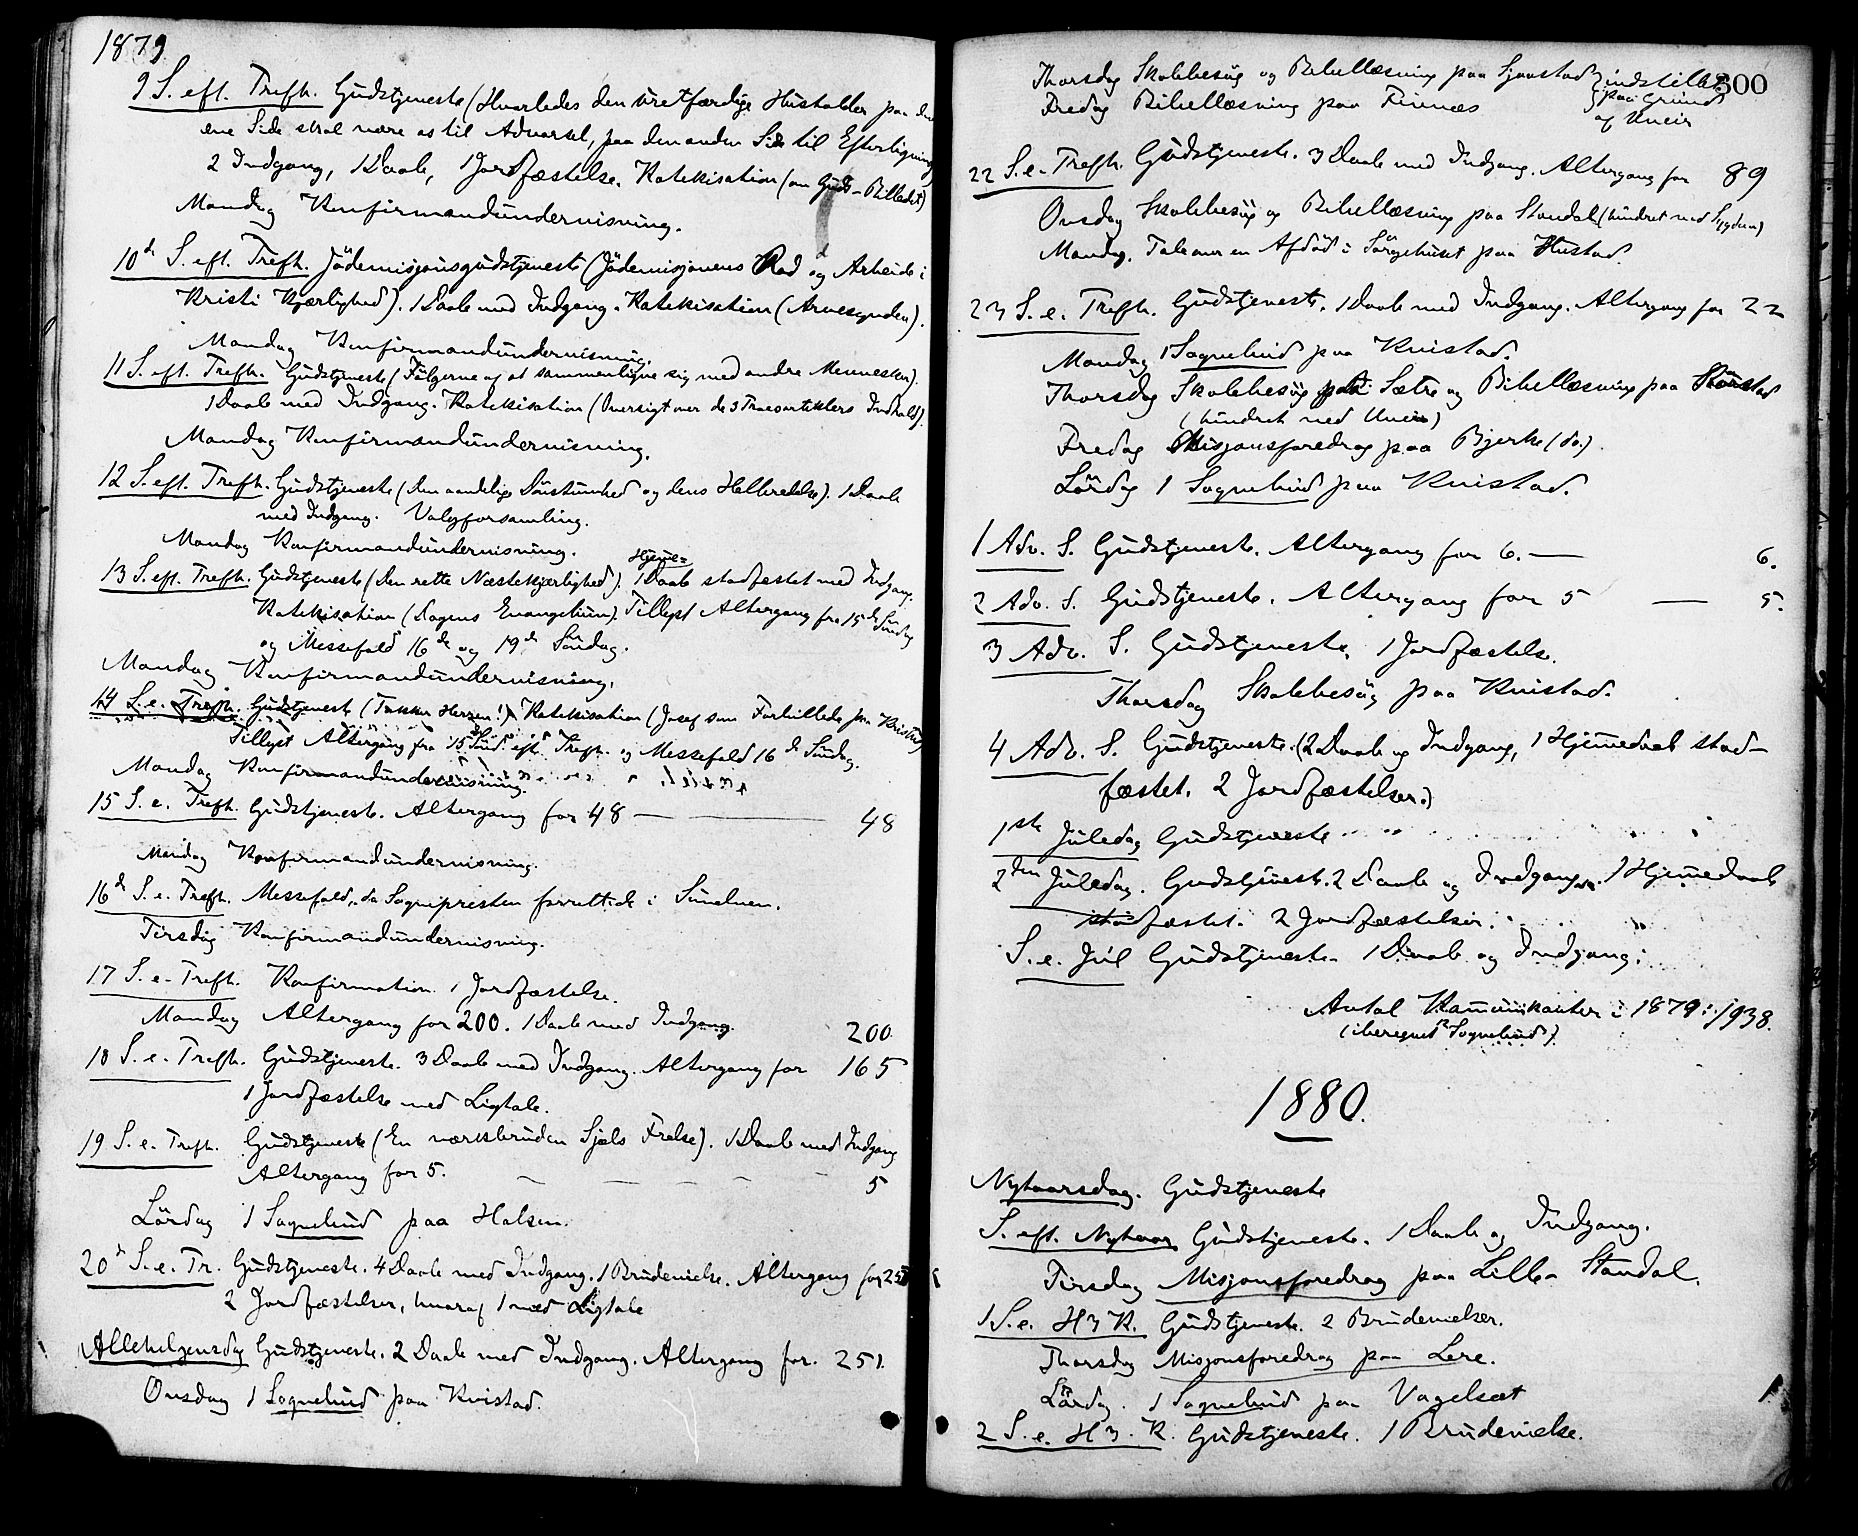 1879
9 S. eft. Trefh. Gudstjeneste (Hvorledes den uretfærdige Husholder paa den
ene Side skal være os til Advarsel, paa den anden Side til Efterligning
2 Indgang, 1 Daab, 1 Jordfæstelse. Katekisation (om Guds-Billedet)
Mandag Konfirmandundervisning.
10d S. eft. Trefh. Jödemisjonsgudstjeneste (Jödemisjonens Raad og Arbeide i
Kristi Kjærlighed). 1 Daab med Indgang. Katekisation (Arvesynden).
Mandag Konfirmandundervisning.
11 S. eft. Trefh. Gudstjeneste (Fölgerne af at sammenligne sig med andre Mennesker).
1 Daab med Indgang. Katekisation (Oversigt over de 3 Troesartiklers Indhold).
Mandag Konfirmandundervisning.
12 S. eft. Trefh. Gudstjeneste (Den aandelige Dövstumhed og dens Helbredelse). 1 Daab
med Indgang. Valgforsamling.
Mandag Konfirmandundervisning.
13 S. eft. Trefh. Gudstjeneste (Den rette Næstekjærlighed). 1 Hjemme-Daab stadfæstet med Indgang.
Katekisation (Dagens Evangelium). Tillyst Altergang fra 15de Søndag
og Messefald 16de og 19de Søndag.
Mandag Konfirmandundervisning.
14 S. e. Trefh. Gudstjenest (Takker Herren!) Katekisation (Josef som Forbillede paa Kristus)
Tillyst Altergang fra 15 Sünd. eft. Trefh. og Messefald 16de Sündag.
Mandag Konfirmandundervisning.
15 S. e. Trefh. Gudstjeneste. Altergang for 48 — 48
Mandag Konfirmandundervisning.
16d S. e. Trefh. Messefald, da Sognepresten forrettede i
Tirsdag Konfirmandundervisning.
17 S. e. Trefh. Konfirmation. 1 Jordfæstelse.
Mandag Altergang for 200. 1 Daab med Indgang. 200
18 S. e. Trefh. Gudstjeneste. 3 Daab med Indgang. Altergang for 165
1 Jordfæstelse med Ligtale.
19 S. e. Trefh. Gudstjeneste (En værkbruden Sjæls Frelse). 1 Daab med Indgang
Altergang for 5. — 5
Lördag 1 Sognebud paa Halsen.
20d S. e. Tr. Gudstjeneste. 4 Daab med Indgang. 1 Brudevielse. Altergang for
2 Jordfæstelser, hvoraf 1 med Ligtale
Allehelgensdag Gudstjeneste. 2 Daab med Indgang. Altergang for. 251.
Onsdag 1 Sognebud paa Kvistad.
300
Thorsdag Skolebesög og Bibellæsning paa Sjaastad } indstillet
Fredag Bibellæsning paa Finnæs } paa Grund
af Uveir
22 S. e. Trefh. Gudstjeneste. 3 Daab med Indgang. Altergang for 89
Onsdag Skolebesög og Bibellæsning paa Standal (hindret ved Sygdom)
Mandag. Tale over en Afdöd i Sörgehuset paa Hustad.
23 S. e. Trefh. Gudstjeneste. 1 Daab med Indgang. Altergang for 22
Mandag 1 Sognebud paa Kvistad.
Thorsdag Skolebesög paa Sætre og Bibellæsning paa
(hindret ved Uveir)
Fredag Misjonsforedrag paa Bjerke (do.)
Lördag 1 Sognebud paa Kvistad.
1 Adv. S. Gudstjeneste. Altergang for 6. — 6.
2 Adv. S. Gudstjeneste. Altergang for 5 — 5.
3 Adv. S. Gudstjeneste. 1 Jordfæstelse.
Thorsdag Skolebesög paa Kvistad.
4 Adv. S. Gudstjeneste. (2 Daab og Indgang, 1 Hjemmedaab stad-
fæstet. 2 Jordfæstelser.)
1ste Juledag Gudstjeneste
2den Juledag. Gudstjeneste. 2 Daab og Indgang. 1 Hjemmedaab
stadfæstet. 2 Jordfæstelser.
S. e. Jul Gudstjeneste. 1 Daab og Indgang.
Antal Kommunikanter i 1879: 1938.
(iberegnet Sognebud).
1880.
Nytaarsdag. Gudstjeneste
S. eft. Nytaar Gudstjeneste. 1 Daab og Indgang.
Tirsdag Misjonsforedrag paa Lille-Standal.
1 S. e. H 3 K. Gudstjeneste. 2 Brudevielser.
Thorsdag Misjonsforedrag paa Lere.
Lördag. 1 Sognebud paa Vagelsæt
2 S. e. H 3. K. Gudstjeneste. 1 Brudevielse.